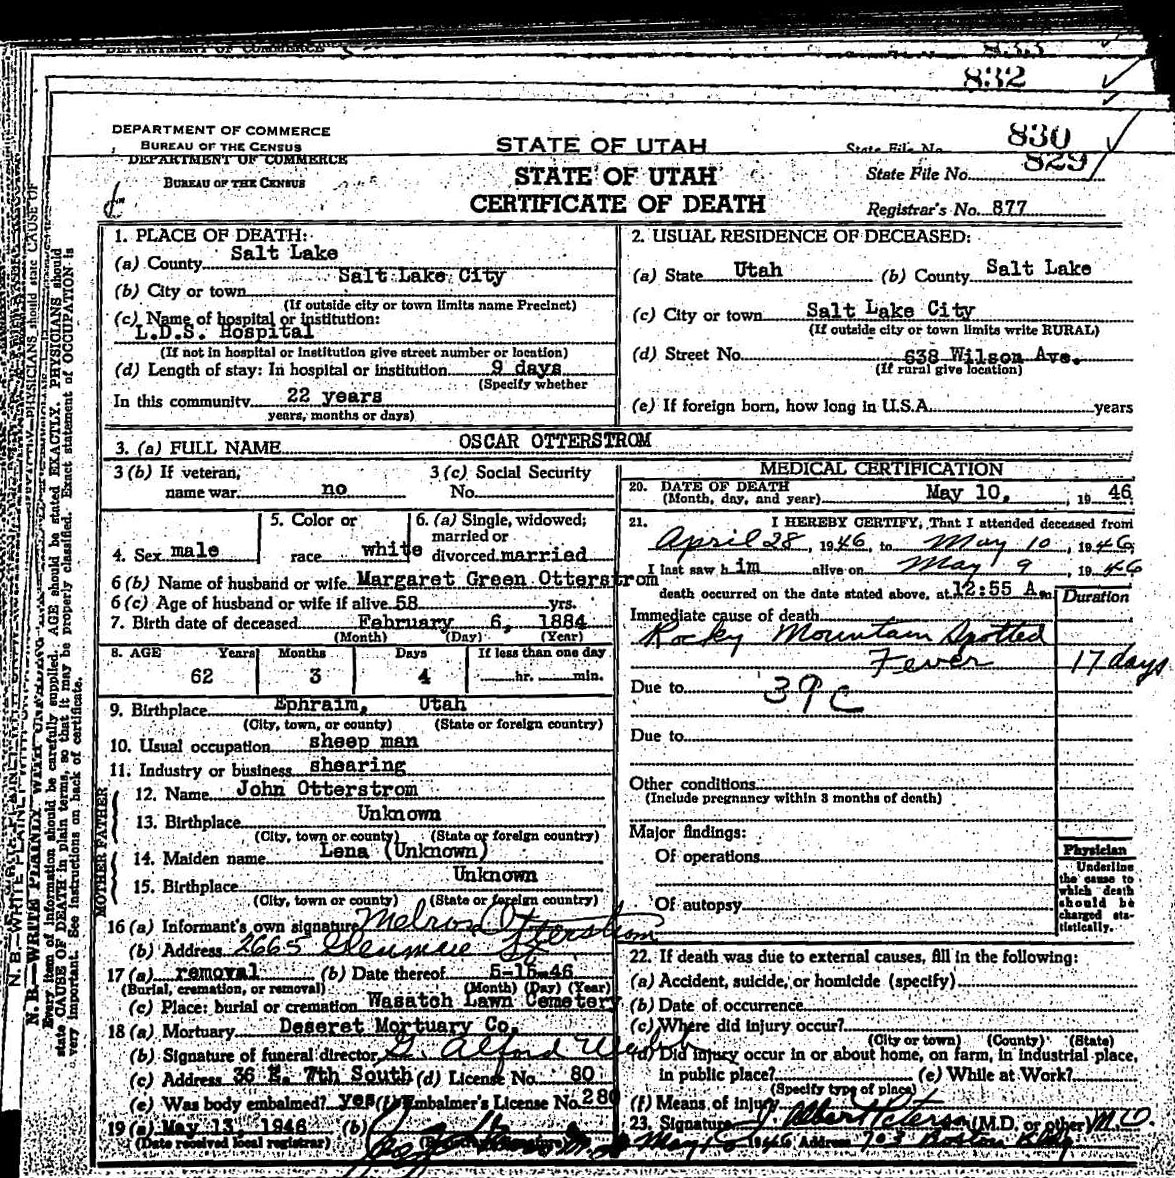 832
DEPARTMENT OF COMMERCE
BUREAU OF THE CENSUS
STATE OF UTAH
State File No. 830
DEPARTMENT OF COMMERCE
BUREAU OF THE CENSUS
STATE OF UTAH
CERTIFICATE OF DEATH
State File No. 829
Registrar's No. 877
1. PLACE OF DEATH:
(a) County Salt Lake
(b) City or town Salt Lake City
(If outside city or town limits name Precinct)
(c) Name of hospital or institution:
L.D.S. Hospital
(If not in hospital or institution give street number or location)
(d) Length of stay: In hospital or institution 9 days
(Specify whether
In this community 22 years
years, months or days)
2. USUAL RESIDENCE OF DECEASED:
(a) State Utah (b) County Salt Lake
(c) City or town Salt Lake City
(If outside city or town limits write RURAL)
(d) Street No. 638 Wilson Ave.
(If rural give location)
(e) If foreign born, how long in U.S.A. years
3. (a) FULL NAME OSCAR OTTERSTROM
3 (b) If veteran, name war no
3 (c) Social Security No.
4. Sex male
5. Color or race white
6. (a) Single, widowed, married or divorced married
6 (b) Name of husband or wife Margaret Green Otterstrom
6 (c) Age of husband or wife if alive 58 yrs.
7. Birth date of deceased February 6, 1884
(Month) (Day) (Year)
8. AGE Years Months Days If less than one day
62 3 4 hr. min.
9. Birthplace Ephraim, Utah
(City, town, or county) (State or foreign country)
10. Usual occupation sheep man
11. Industry or business shearing
FATHER
12. Name John Otterstrom
13. Birthplace Unknown
(City, town or county) (State or foreign country)
MOTHER
14. Maiden name Lena (Unknown)
15. Birthplace Unknown
(City, town or county) (State or foreign country)
16 (a) Informant's own signature Melron Otterstrom
(b) Address 2665 Glenmare St
17 (a) removal (b) Date thereof 5-15-46
(Burial, cremation, or removal) (Month) (Day) (Year)
(c) Place: burial or cremation Wasatch Lawn Cemetery
18 (a) Mortuary Deseret Mortuary Co.
(b) Signature of funeral director G. Alford Webb
(c) Address 36 E. 7th South (d) License No. 80
(e) Was body embalmed? yes (f) Embalmer's License No. 280
19 (a) May 13, 1946 (b)
(Date received local registrar)
MEDICAL CERTIFICATION
20. DATE OF DEATH
(Month, day, and year) May 10, 19 46
21. I HEREBY CERTIFY, That I attended deceased from
April 28, 1946, to May 10, 1946,
I last saw him alive on May 9 1946
death occurred on the date stated above, at 12:55 A.m.
Duration
Immediate cause of death
Rocky Mountain Spotted
Fever 17 days
Due to 39c
Due to
Other conditions
(Include pregnancy within 3 months of death)
Major findings:
Of operations
Of autopsy
Physician
Underline
the cause to
which death
should be
charged sta-
tistically.
22. If death was due to external causes, fill in the following:
(a) Accident, suicide, or homicide (specify)
(b) Date of occurrence
(c) Where did injury occur?
(City or town) (County) (State)
(d) Did injury occur in or about home, on farm, in industrial place,
in public place? (e) While at Work?
(Specify type of place)
(f) Means of injury
23. Signature J. Albert Peterson (M.D. or other) M.D.
Address 703 Boston Bldg
N. B.—WRITE PLAINLY WITH UNFADING
Every item of information should be carefully supplied. AGE should be stated EXACTLY. PHYSICIANS should
state CAUSE OF DEATH in plain terms, so that it may be properly classified. Exact statement of OCCUPATION is
very important. See instructions on back of certificate.